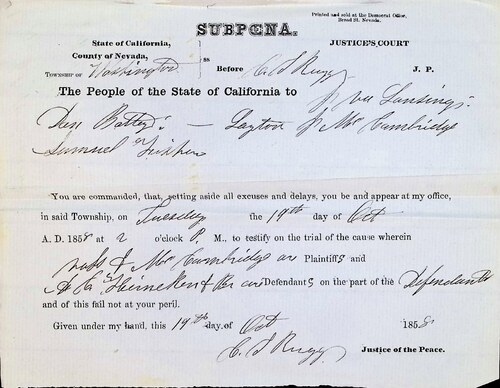 Printed and sold at the Democrat Office,
Broad St. Nevada.
SUBPŒNA.
State of California,
County of Nevada,
JUSTICE'S COURT
ss
Township of Washington
Before C. S. Rugg J. P.
The People of the State of California to J. Van Lansing.
Ben Battey. — Layton J. Mc Cambridge
Samuel
You are commanded, that, setting aside all excuses and delays, you be and appear at my office,
in said Township, on Tuesday the 19th day of Oct
A. D. 1858 at 2 o'clock P. M., to testify on the trial of the cause wherein
& Mc Cambridge are Plaintiffs and
Heineken & are Defendants on the part of the Defendants
and of this fail not at your peril.
Given under my hand, this 19th day of Oct 1858
C. S. Rugg Justice of the Peace.